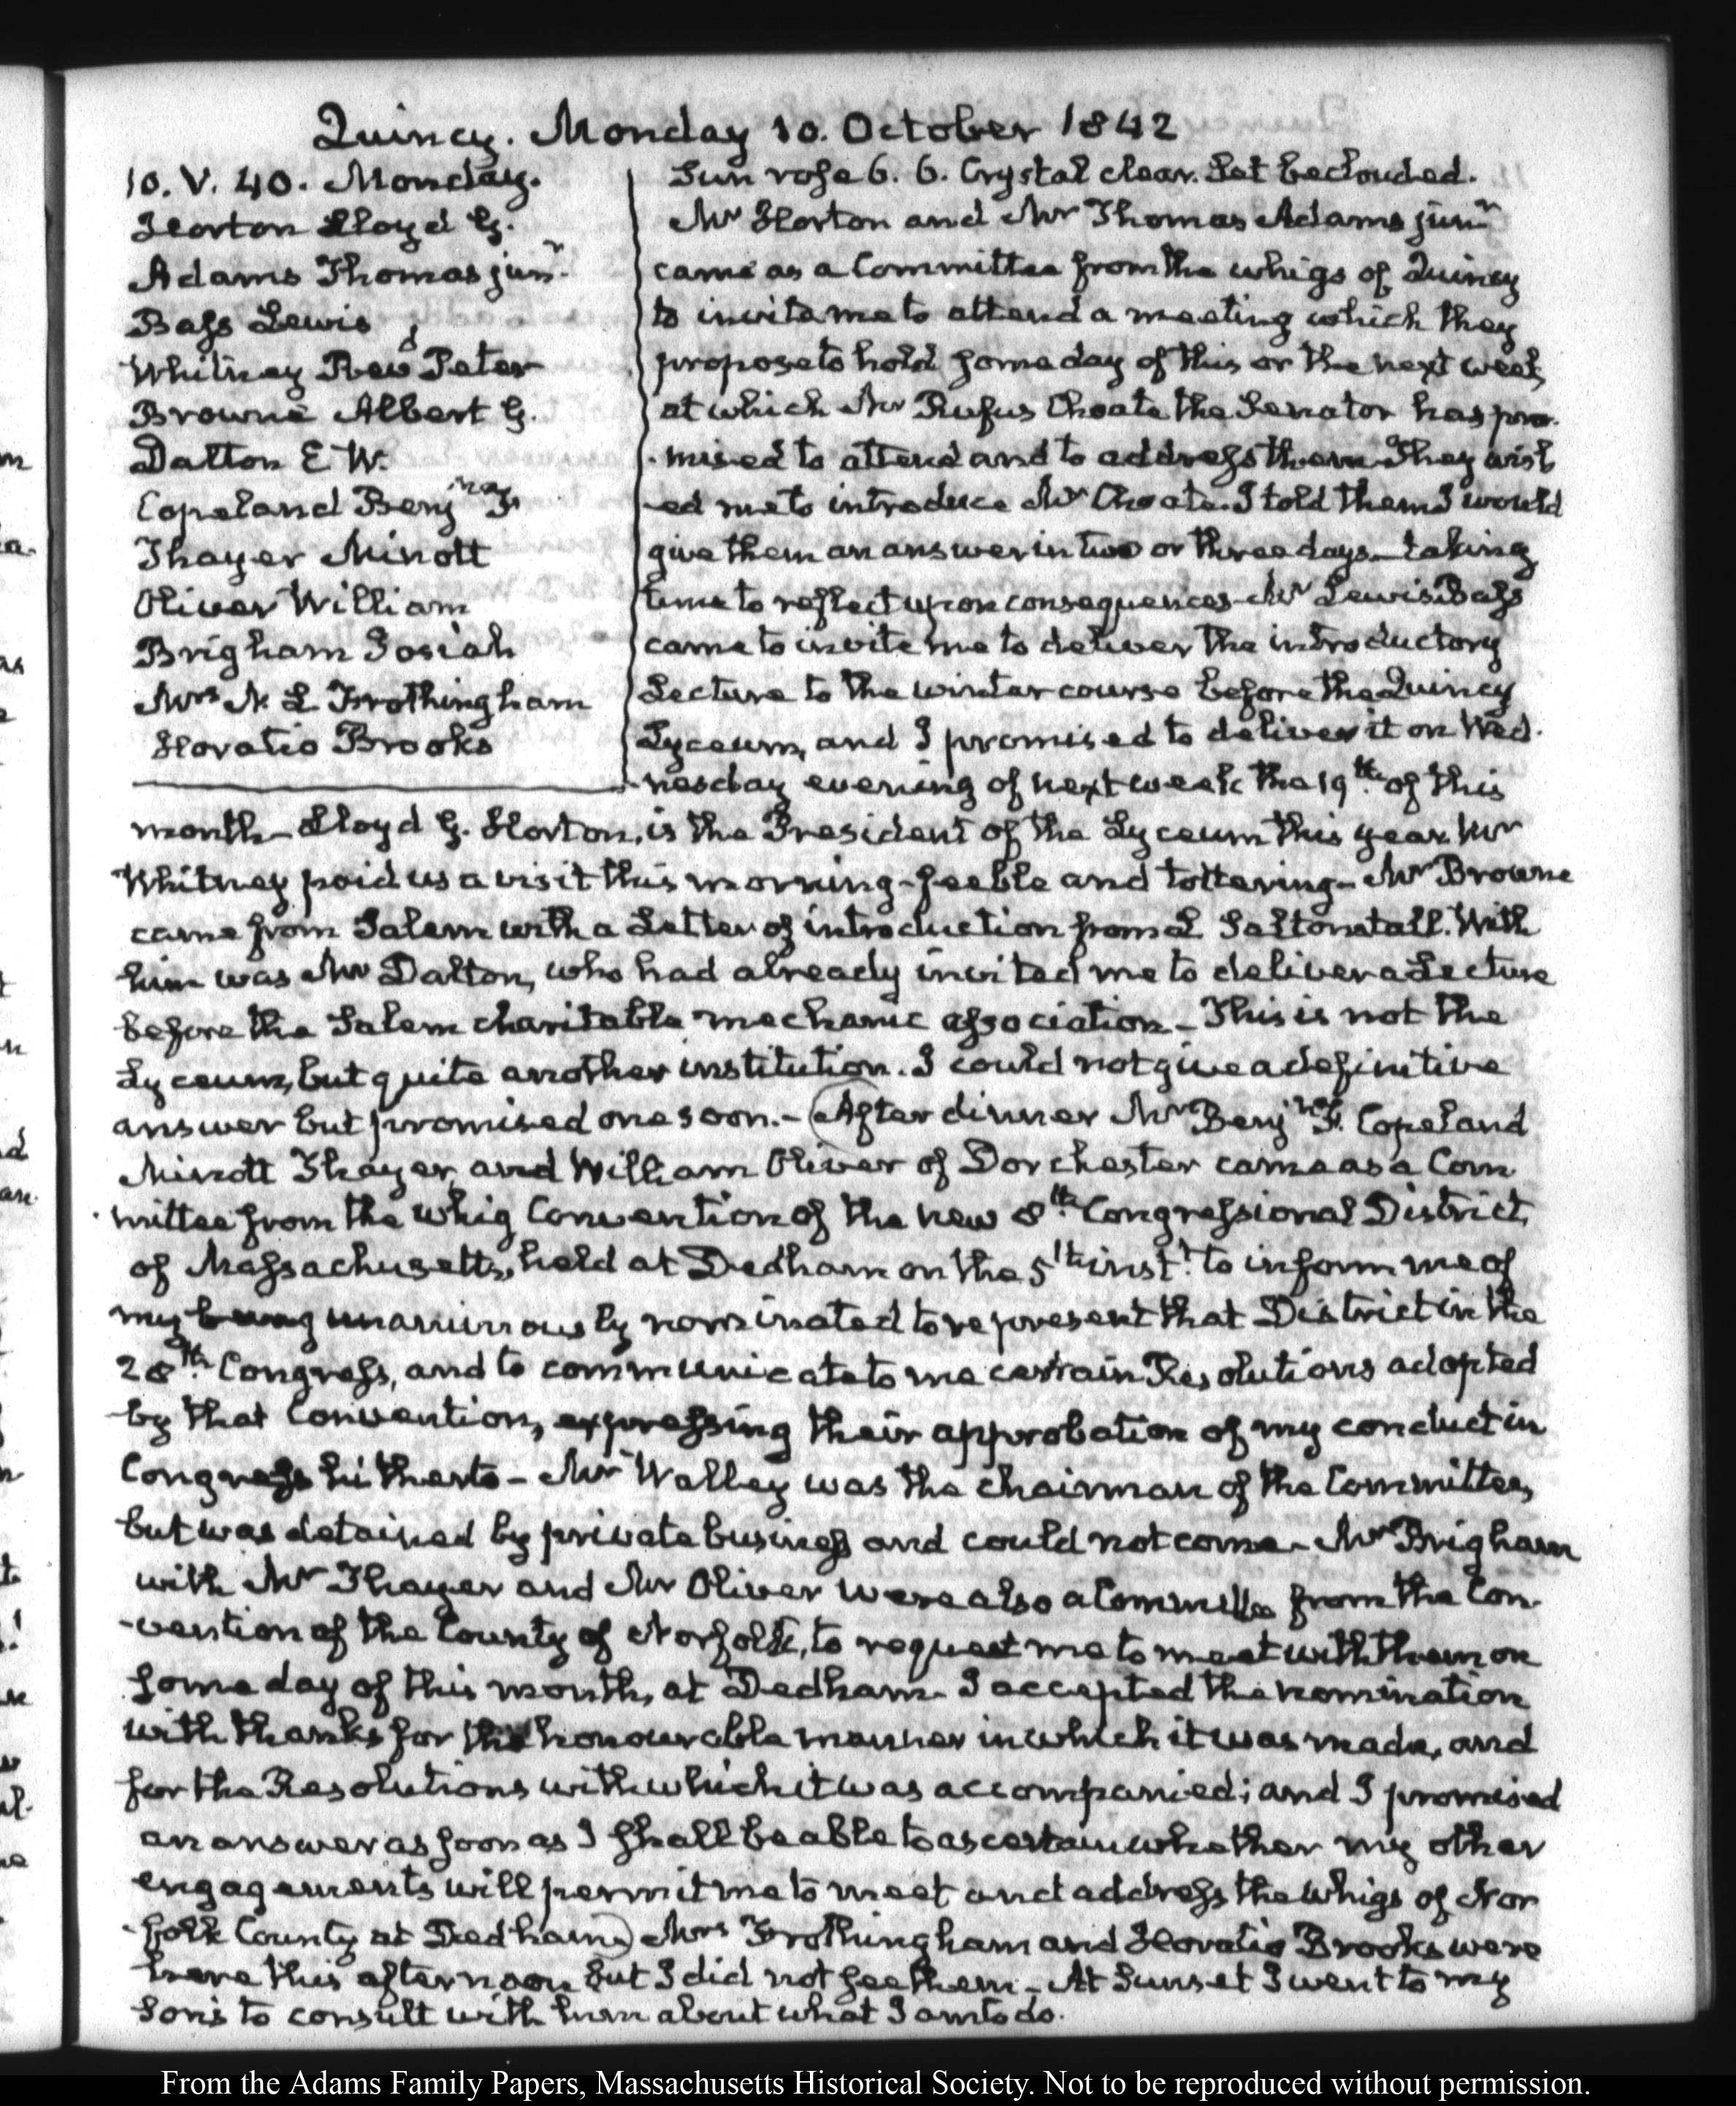 Quincy. Monday 10. October 1842
10. V. 40. Monday.
Horton Lloyd G.
Adams Thomas junr.
Bass Lewis
Whitney Revd Peter
Browne Albert G.
Dalton E W.
Copeland Benjin F.
Thayer Minott
Oliver William
Brigham Josiah
Mrs N L Frothingham
Horatio Brooks
Sun rose 6. 6. Crystal clear. Set beclouded.
Mr Horton and Mr Thomas Adams junr
came as a Committee from the whigs of Quincy
to invite me to attend a meeting which they
propose to hold some day of this or the next week,
at which Mr Rufus Choate the Senator has pro-
-mised to attend and to address them. They wish
-ed me to introduce Mr Choate. I told them I would
give them an answer in two or three days—taking
time to reflect upon consequences—Mr Lewis Bass
came to invite me to deliver the introductory
Lecture to the winter course before the Quincy
Lyceum, and I promised to deliver it on Wed-
-nesday evening of next week the 19th. of this
month—Lloyd G. Horton, is the President of the Lyceum this year. Mr
Whitney paid us a visit this morning—feeble and tottering—Mr Browne
came from Salem with a Letter of introduction from L Saltonstall. With
him was Mr Dalton, who had already invited me to deliver a Lecture
before the Salem charitable mechanic association—This is not the
Lyceum, but quite another institution. I could not give a definitive
answer but promised one soon.—(After dinner Mr Benjin F. Copeland
Minott Thayer, and William Oliver of Dorchester came as a Com-
-mittee from the Whig Convention of the new 8th. Congressional District,
of Massachusetts, held at Dedham on the 5th inst. to inform me of
my being unanimously nominated to represent that District in the
28th. Congress, and to communicate to me certain Resolutions adopted
by that Convention, expressing their approbation of my conduct in
Congress hitherto—Mr Walley was the chairman of the Committee,
but was detained by private business and could not come—Mr Brigham
with Mr Thayer and Mr Oliver were also a Committee from the Con-
-vention of the County of Norfolk, to request me to meet with them on
some day of this month, at Dedham. I accepted the nomination
with thanks for the honourable manner in which it was made, and
for the Resolutions with which it was accompanied; and I promised
an answer as soon as I shall be able to ascertain whether my other
engagements will permit me to meet and address the Whigs of Nor
-folk County at Dedham) Mrs Frothingham and Horatio Brooks were
here this afternoon but I did not see them—At Sunset I went to my
Son's to consult with him about what I am to do.
From the Adams Family Papers, Massachusetts Historical Society. Not to be reproduced without permission.